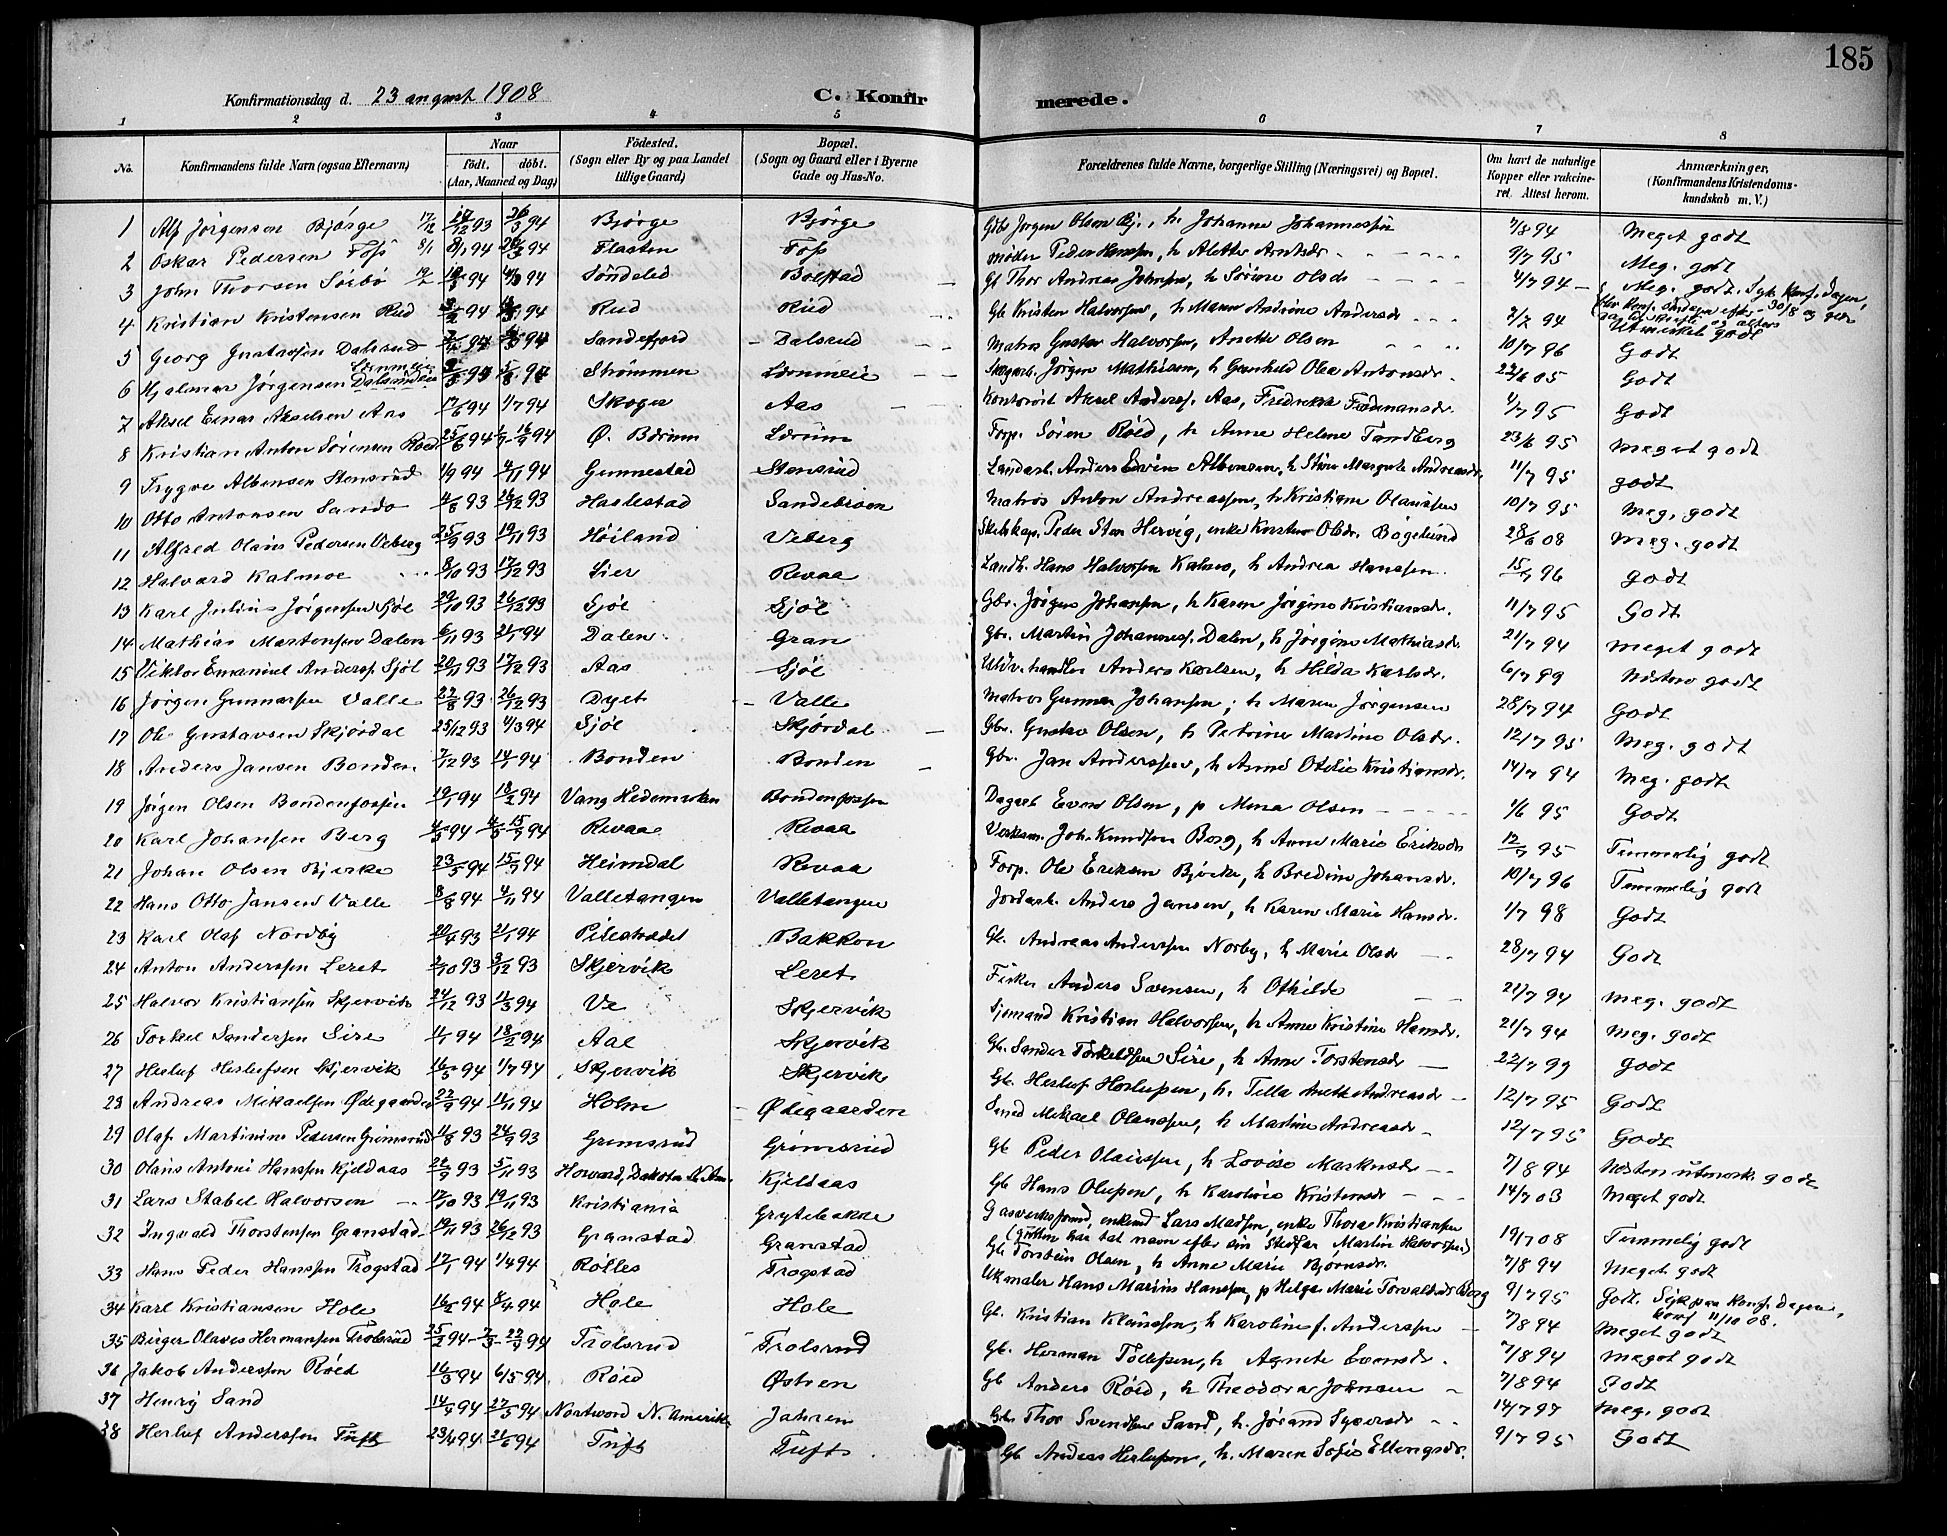 185
Konfirmationsdag d. 23 august 1908 C. Konfirmerede.
1 2 3 4 5 6 7 8
No. Konfirmandens fulde Navn (ogsaa Efternavn) Naar födt. döbt. (Aar, Maaned og Dag) Födested. (Sogn eller By og paa Landet tillige Gaard) Bopæl. (Sogn og Gaard eller i Byerne Gade og Hus-No. Forældrenes fulde Navne, borgerlige Stilling (Næringsvei) og Bopæl. Om havt de naturlige Kopper eller vakcineret. Attest herom. Anmærkninger, (Konfirmandens Kristendomskundskab m. V.)
1 Alf Jörgensen Bjørge 17/12 93 26/3 94 Bjørge Bjørge Gbr Jörgen Olsen Bj., h. Johanne Johannessen 7/8 94 Meget godt
2 Oskar Pedersen Foss 8/1 8/1 94 94 Flaaten Foss Peder Hanssen, h Alette Arntsdr. 9/7 95 Meg. godt
3 John Thorsen Söibö 94 94 Söndeled Bolstad Gb Thor Andreas Johnsen, h Sörine Olsdr 4/7 94 Meg. godt. Syk Konf. dagen,
4 Kristian Kristensen Rud 94 94 Rud Rud Gb Kristen Halvorsen, h. Maren Andrine Andersdr 7/7 94 Utmerket godt
5 Georg Gustavsen Dalsrud 94 94 Sandefjord Dalsrud Matros Gustav Halvorsen, Anette Olsen 10/7 96 Godt
6 Hjalmar Jörgensen Strömmen Jörgen Mathisen, h Gunhild Olea Antonsdr. 22/6 05 Godt
7 Aksel Einar Akselsen Aas 17/6 94 1/7 94 Skoger Aas Kontorist Aksel Anderss. Aas, Fredrikke 4/7 95 Godt
8 Kristian Anton Sörensen Röed 25/6 94 94 Ø. Bærum Lerum Forp. Sören Röed, h Anne Helene Tandberg 23/6 95 Meget godt
9 Trygve Albensen Stensrud 1/9 94 4/11 94 Gunnestad Stensrud Landarb. Anders Edvin Albensen, h Margrete Andreasdr. 11/7 95 godt
10 Otto Antonsen Sando 4/8 93 26/12 93 Haslestad Sandebroen Matros Anton Andreassen, h Kristiane Olaussen 10/7 95 Meg. godt
11 Alfred Olaus Pedersen Veberg 25/9 93 19/11 93 Höiland Veberg Skibskap. Peder Sten Hervig, enke Kirsten Olsdr. Bögelund 28/6 08 Meg. godt
12 Halvard Kalmoe 8/10 93 17/12 93 Lier Revaa Landh. Hans Halvorsen Kalmo, h Andrea Hanssen. 15/7 96 godt
13 Karl Julius Jörgensen Sjöl 29/10 93 26/12 93 Sjöl Sjöl Gbr. Jörgen Johansen, h Karen Jörgine Kristiansdr. 11/7 95 Godt
14 Mathias Martensen Dalen 6/11 93 21/1 94 Dalen Gran Gbr. Martin Johanness. Dalen, h Jörgine Mathiasdr. 21/7 94 Meget godt
15 Viktor Emanuel Anderss. Sjöl 20/11 93 17/12 93 Aas Sjöl Anders Karlsen, h Hilda Karlsdr. 6/7 99 Nesten godt
16 Jörgen Gunnarsen Valle 22/8 93 26/12 93 Dyet Valle Matros Gunnar Johansen, h Maren Jörgensen 28/7 94 Godt
17 Ole Gustavsen Skjørdal 25/12 93 4/3 94 Sjöl Skjørdal Gbr. Gustav Olsen, h Petrine Martine Olsdr. 12/7 95 Meg. godt
18 Anders Jansen Bonden 7/12 93 14/1 94 Bonden Bonden Gbr. Jan Anderssen, h Anne Otelie Kristiansdr. 14/7 94 Meg. godt
19 Jörgen Olsen Bondenfossen 19/1 94 18/2 94 Vang Hedemarken Bondenfossen Dagarb Even Olsen, p Mina Olsen 1/6 95 Godt
20 Karl Johansen Berg 4/3 94 94 Revaa Revaa Joh. Knudsen Berg, h Anne Marie Eriksdr 12/7 95 Temmelig godt
21 Johan Olsen Bjerke 23/5 94 15/7 94 Heimdal Revaa Forp. Ole Eriksen Bjerke, h Bredine Johansdr. 10/7 96 Temmelig godt
22 Hans Otto Jansen Valle 8/8 94 4/11 94 Valletangen Valletangen Jordarb. Anders Jansen, h Karen Marie Hansdr. 1/7 98 Godt
23 Karl Olaf Nordby 20/4 93 21/1 94 Pilestrædet Bakken Gb. Andreas Anderssen Norby, h Marie Olsdr 28/7 94 Godt
24 Anton Anderssen Leret 2/10 93 3/12 93 Skjervik Leret Fisker Anders Sörensen, h Othilde 21/7 94 Meg. godt
25 Halvor Kristiansen Skjervik 24/12 93 11/3 94 Ve Skjervik Sjömand Kristian Halvorsen, h Anne Kristine Hansdr. 21/7 94 Meg. godt
26 Torkel Sandersen Sire 1/1 94 18/2 94 Aal Skjervik Gb. Sander Torkeldsen Sire, h Anne Torstensdr 22/7 99 godt
27 Herluf Herlufsen Skjervik 16/5 94 1/7 94 Skjervik Skjervik Gb. Herluf Herlufsen, h. Tilla Anette Andreasdr 12/7 95 Godt
28 Andreas Mikaelsen Ødegaarden 22/9 94 11/11 94 Holm Ødegaarden Smed Mikael Olaussen, h Martine Andreasdr 12/7 95 Godt
29 Olaf Martinius Pedersen Grimsrud 11/8 93 24/9 93 Grimsrud Grimsrud Gb Peder Olaussen, h Lovise Markusdr 7/8 94 Nesten utmerk. godt
30 Olaus Antoni Hanssen Kjeldaas 24/9 93 5/11 93 Howard, Dakota N. Am. Kjeldaas Gb Hans Olufsen, h Karoline Kristensdr 14/7 03 Meget godt
31 Lars Stabel Halvorsen 17/10 93 19/11 93 Kristiania Grytebakke enkemd Lars Madsen, enke Thora Kristiansen
(gutten har tat navn efter sin stedfar Martin Halvorsen) 19/7 08 Temmelig godt
32 Ingvald Thorstensen Granstad 19/11 93 26/12 93 Granstad Granstad Gb. Torstein Olsen, h Anne Marie Björnsdr. 7/8 94 Meget godt
33 Hans Peder Hanssen Trogstad 17/1 94 1/4 94 Rölles Trogstad Hans Marius Hanssen, p Helga Marie Torvaldsdr Berg 9/7 95 Godt. Syk paa Konf. dagen, konf 11/10 08.
34 Karl Kristiansen Hole 16/2 94 8/4 94 Hole Hole Gb. Kristian Klausen, h Karoline f. Anderssen 7/8 94 Meget godt
35 Birger Olaves Hermansen Trolsrud 25/2 94 94 Trolsrud Trolsrud Gb. Herman Tollefsen, h Agnete Evensdr. 7/8 94 Meget godt
36 Jakob Anderssen Röed 16/3 94 6/5 94 Röed Østren Gb Anders Röed, h Theodora Johnsen 7/8 94 Godt
37 Henry Sand 14/4 94 27/5 94 Nortwood N. Amerika Jahren Gbr. Thor Svendsen Sand, h. Jörand Syversdr 14/7 97 Meg. godt
38 Herluf Anderssen Tuft 23/4 94 21/6 94 Tuft Tuft Gb Andreas Herlufsen, h. Maren Sofie Ellingsdr. 9/7 95 Godt